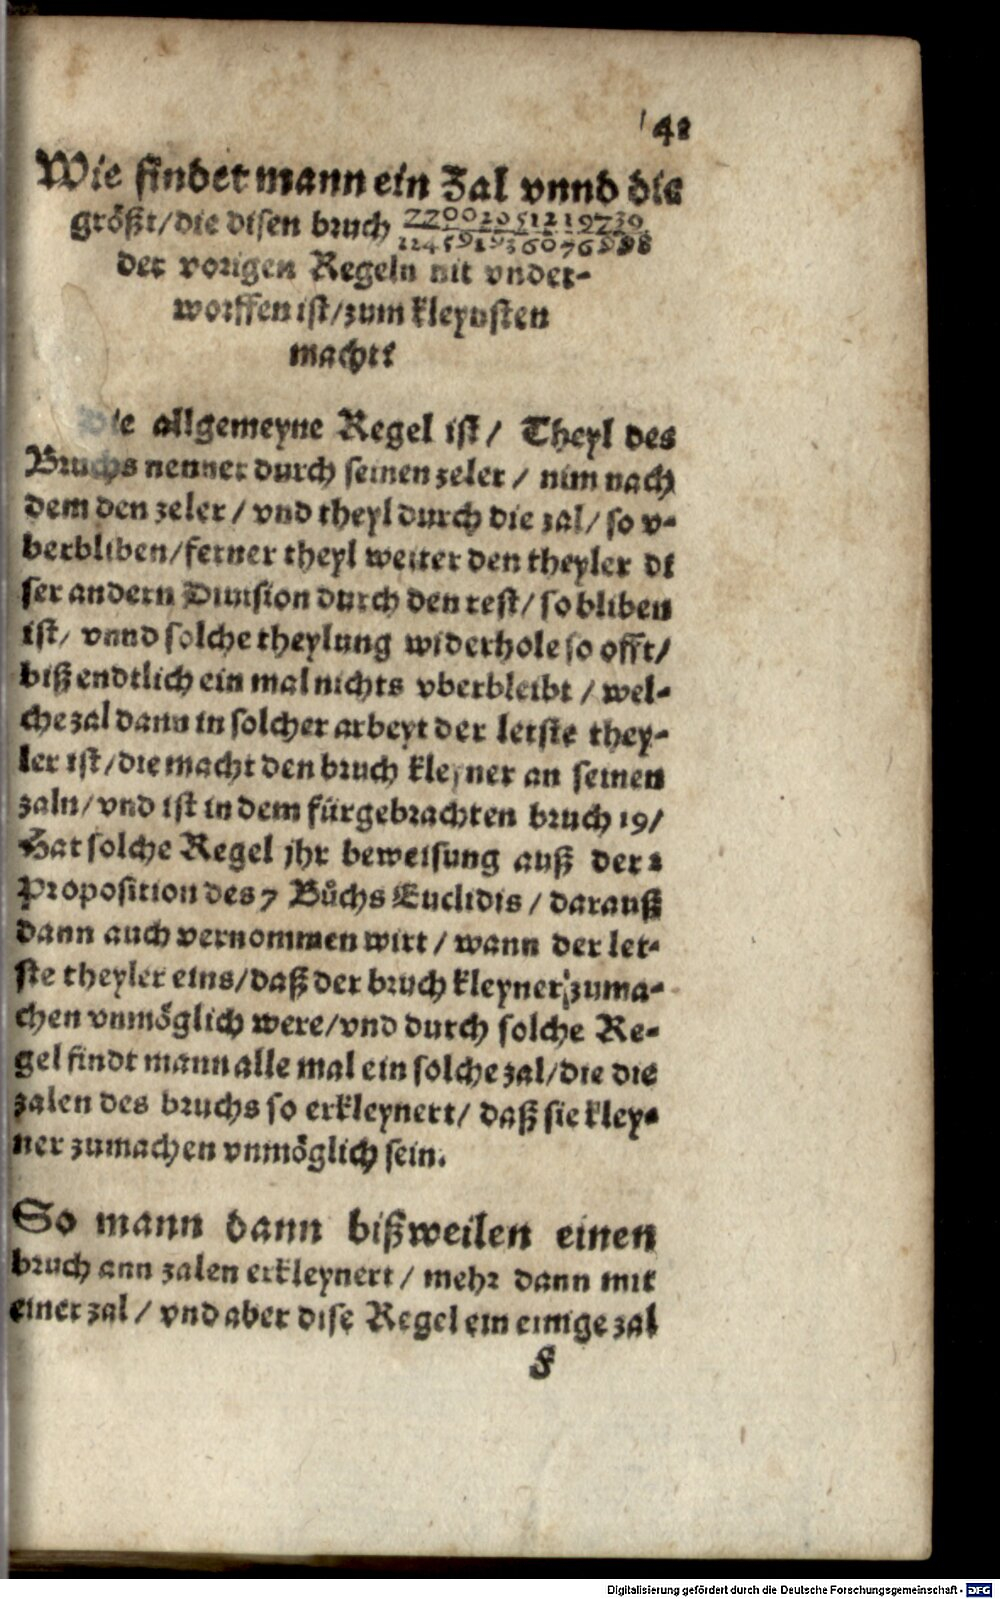 41
Wie findet mann ein Zal vnnd die
größt/die disen bruch
der vorigen Regeln nit vnder-
worffen ist/zum kleynsten
macht?
Die allgemeyne Regel ist/ Theyl des
Bruchs nenner durch seinen zeler/ nim nach
dem den zeler/ vnd theyl durch die zal/ so v-
berbliben/ferner theyl weiter den theyler di
ser andern Diuision durch den rest/ so bliben
ist/ vnnd solche theylung widerhole so offt/
biß endtlich ein mal nichts vberbleibt/ wel-
che zal dann in solcher arbeyt der letste they-
ler ist/die macht den bruch kleyner an seinen
zaln/vnd ist in dem fürgebrachten bruch 19/
Hat solche Regel jhr beweisung auß der 2
Proposition des 7 Bůchs Euclidis/ darauß
dann auch vernommen wirt/ wann der let-
ste theyler eins/daß der bruch kleyner zuma-
chen vnmöglich were/vnd durch solche Re-
gel findt mann alle mal ein solche zal/die die
zalen des bruchs so erkleynert/ daß sie kley-
ner zumachen vnmöglich sein.
So mann dann bißweilen einen
bruch ann zalen erkleynert/ mehr dann mit
einer zal/ vnd aber dise Regel ein einige zal
F
Digitalisierung gefördert durch die Deutsche Forschungsgemeinschaft - DFG